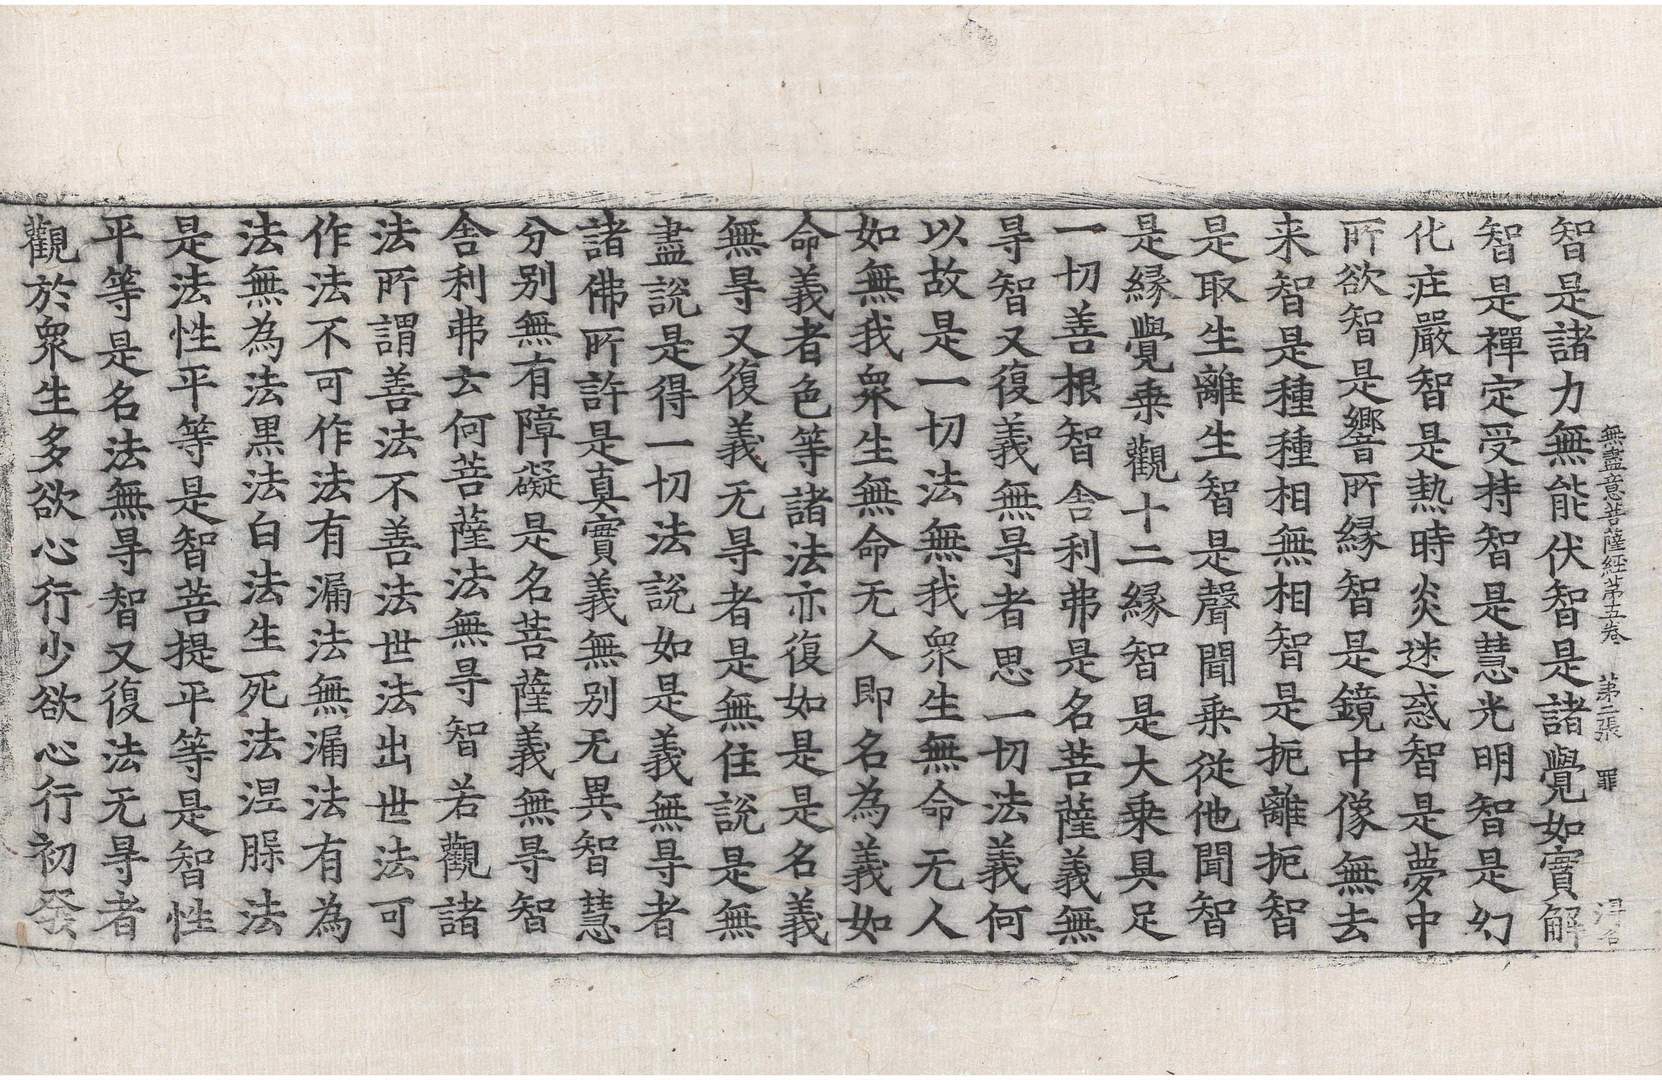 無盡意菩薩経苐五卷　苐二張　罪
智是諸力無能伏智是諸覺如實解
智是禪定受持智是慧光明智是幻
化庄嚴智是熱時炎迷惑智是夢中
所欲智是響所縁智是鏡中像無去
来智是種種相無相智是扼離扼智
是取生離生智是聲聞乗從他聞智
是縁覺乗觀十二縁智是大乗具足
一切善根智舍利弗是名菩薩義無
㝵智又復義無㝵者思一切法義何
以故是一切法無我衆生無命无人
如無我衆生無命无人即名為義如
命義者色等諸法亦復如是是名義
無㝵又復義无㝵者是無住說是無
盡說是得一切法說如是義無㝵者
諸佛所許是真實義無別无異智慧
分別無有障礙是名菩薩義無㝵智
舍利弗云何菩薩法無㝵智若觀諸
法所謂善法不善法世法出世法可
作法不可作法有漏法無漏法有為
法無為法黒法白法生死法涅槃法
是法性平等是智菩提平等是智性
平等是名法無㝵智又復法无㝵者
觀於衆生多欲心行少欲心行初發